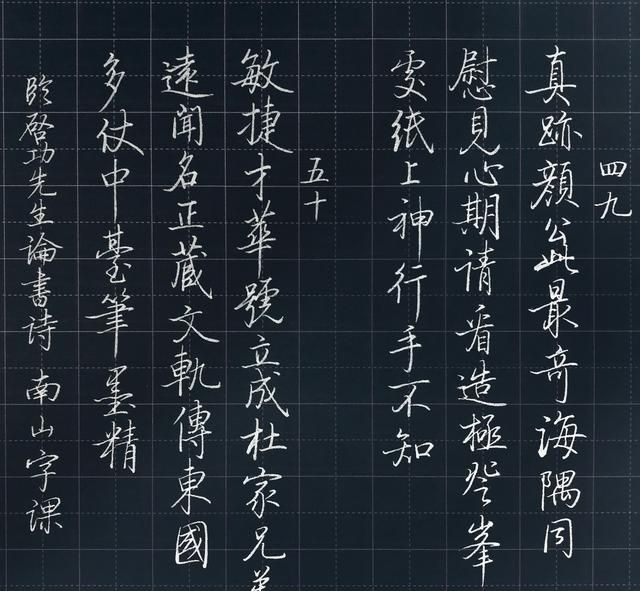 四九
真跡顏公此最奇海隅同
慰見心期請看造極登峯
處紙上神行手不知
五十
敏捷才華號立成杜家兄弟
遠聞名正藏文軌傳東國
多仗中臺筆墨精
臨啓功先生論書詩 南山字課